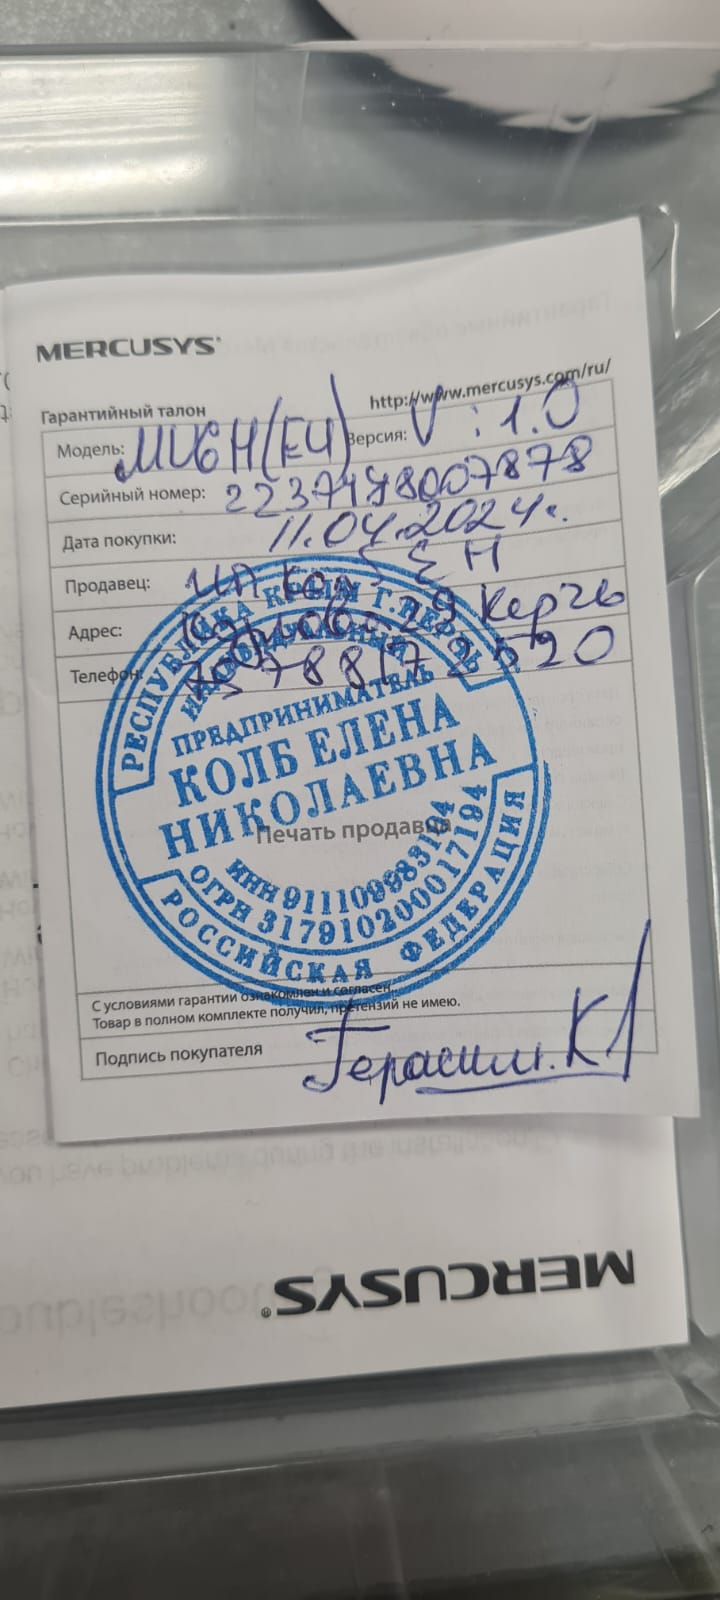 MERCUSYS®
http://www.mercusys.com/ru/
Гарантийный талон
Модель: MU6H(EU) Версия: V : 1.0
Серийный номер: 2237478007878
Дата покупки: 11.04.2024г.
Продавец: ИП Колб Е Н
Адрес: 29 Керчь
Телефон: 788172520
РЕСПУБЛИКА КРЫМ Г. КЕРЧЬ
ИНДИВИДУАЛЬНЫЙ
ПРЕДПРИНИМАТЕЛЬ
КОЛБ ЕЛЕНА
НИКОЛАЕВНА
Печать продавца
ИНН 911109983194
ОГРН 317910200017194
РОССИЙСКАЯ ФЕДЕРАЦИЯ
С условиями гарантии ознакомлен и согласен.
Товар в полном комплекте получил, претензий не имею.
Подпись покупателя Герасим. К
you have problems during the
MERCUSYS®